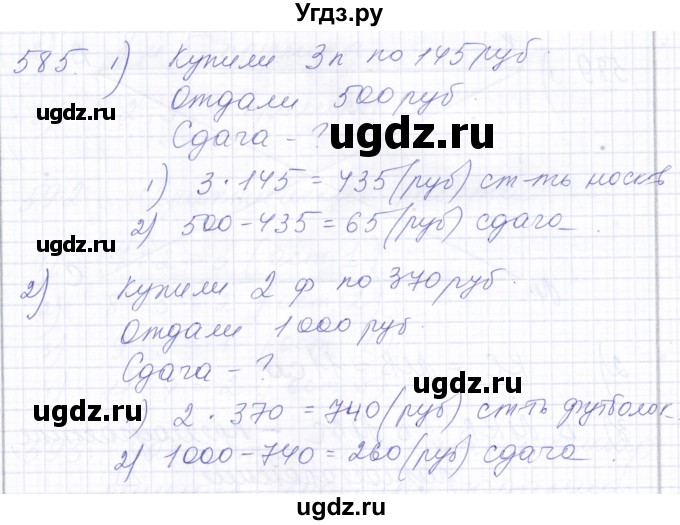 Угдз.ру
585. 1) Купили 3п по 145 руб.
Отдали 500 руб.
Сдача - ?
1) 3 · 145 = 435 (руб) ст-ть носков
2) 500 - 435 = 65 (руб) сдача.
2) Купили 2 ф по 370 руб.
Отдали 1000 руб.
Сдача - ?
1) 2 · 370 = 740 (руб) ст-ть футболок.
2) 1000 - 740 = 260 (руб) сдача.
ugdz.ru
ugdz.ru
ugdz.ru
ugdz.ru
ugdz.ru
ugdz.ru
ugdz.ru
ugdz.ru
ugdz.ru